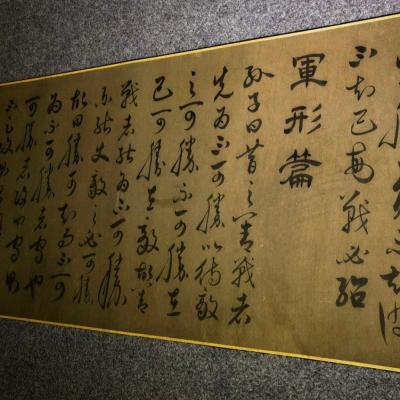 勝一負不知彼
不知己每戰必殆
軍形篇
孫子曰昔之善戰者
先為不可勝以待敵
之可勝不可勝在
己可勝在敵故善
戰者能為不可勝
不能使敵之必可勝
故曰勝可知而不可
為不可勝者守也
可勝者攻也守則
不足攻則